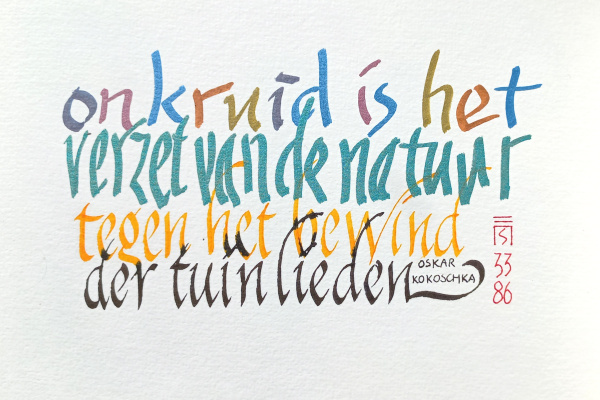 onkruid is het
verzet van de natuur
tegen het bewind
der tuinlieden
OSKAR
KOKOSCHKA
33
86